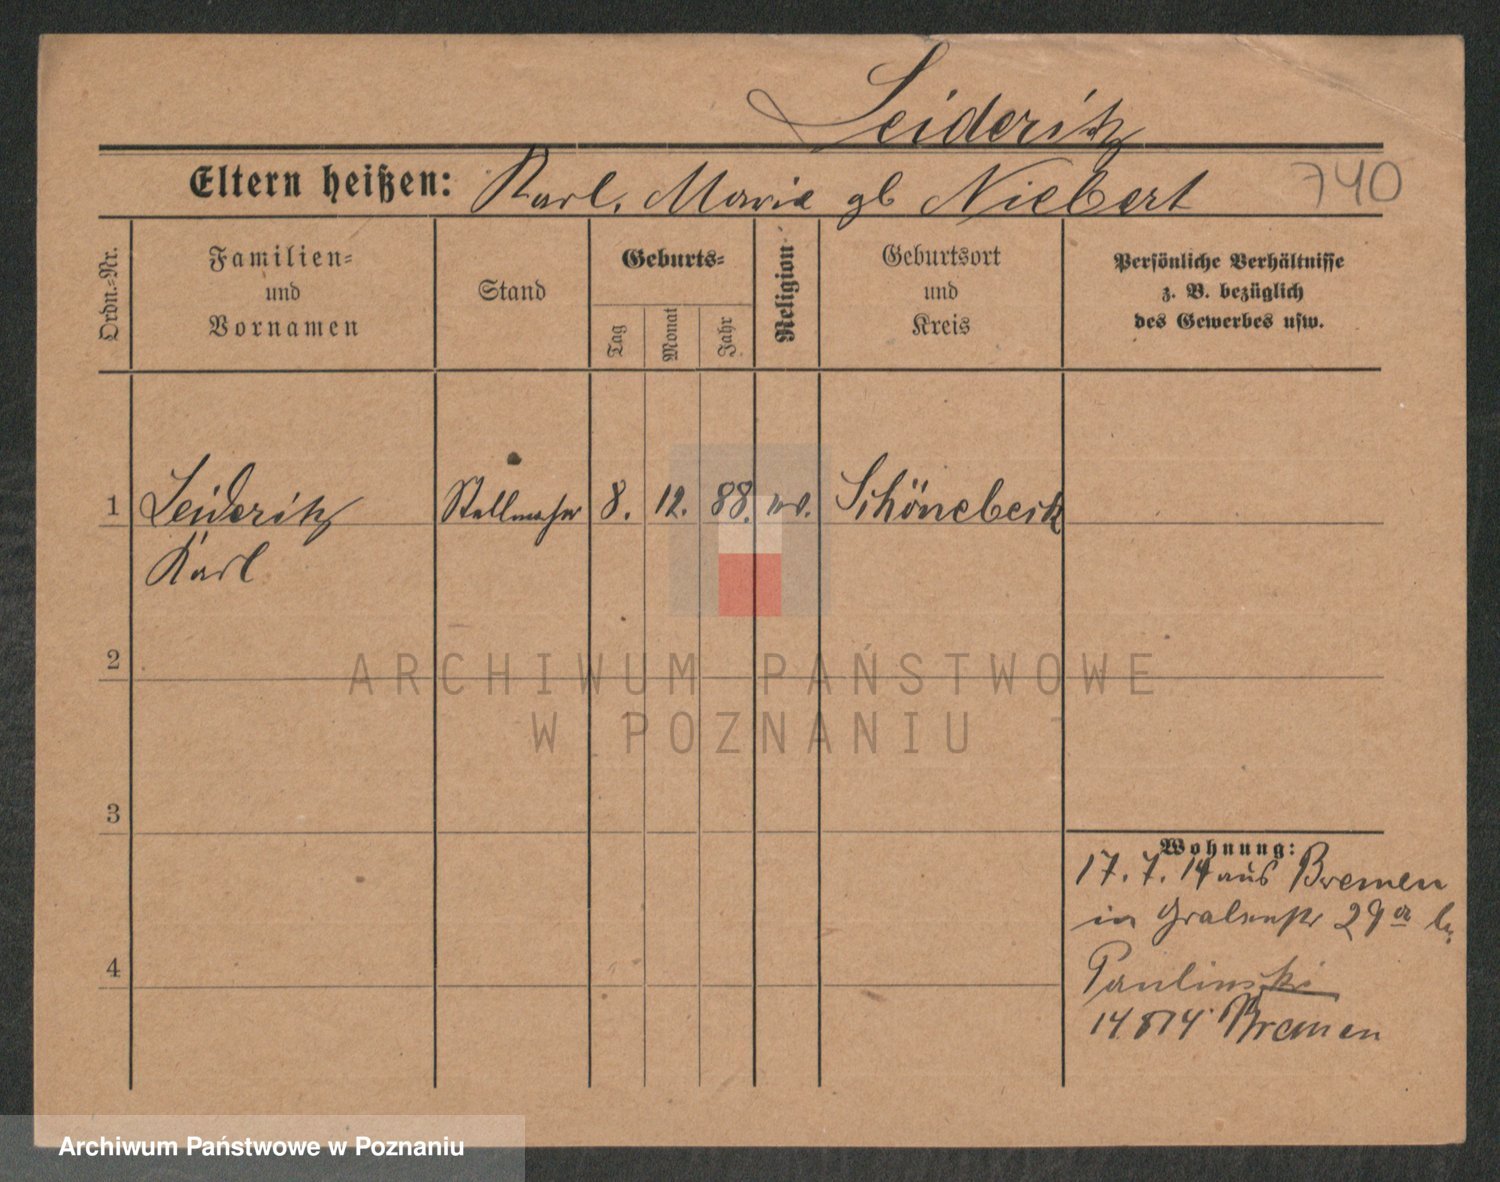 Leideritz
Eltern heißen: Karl, Maria gb Niebert
740
Ordn.=Nr.
Familien=
und
Vornamen
Stand
Geburts=
Tag
Monat
Jahr
Religion
Geburtsort
und
Kreis
Persönliche Verhältnisse
z. B. bezüglich
des Gewerbes usw.
1 Leideritz 8. 12. 88. Schönebeck
Karl
2
3
4
Wohnung:
17. 7. 14 aus Bremen
in 29a b.
Paulinski
14 8 14 Bremen
ARCHIWUM PAŃSTWOWE
W POZNANIU
Archiwum Państwowe w Poznaniu